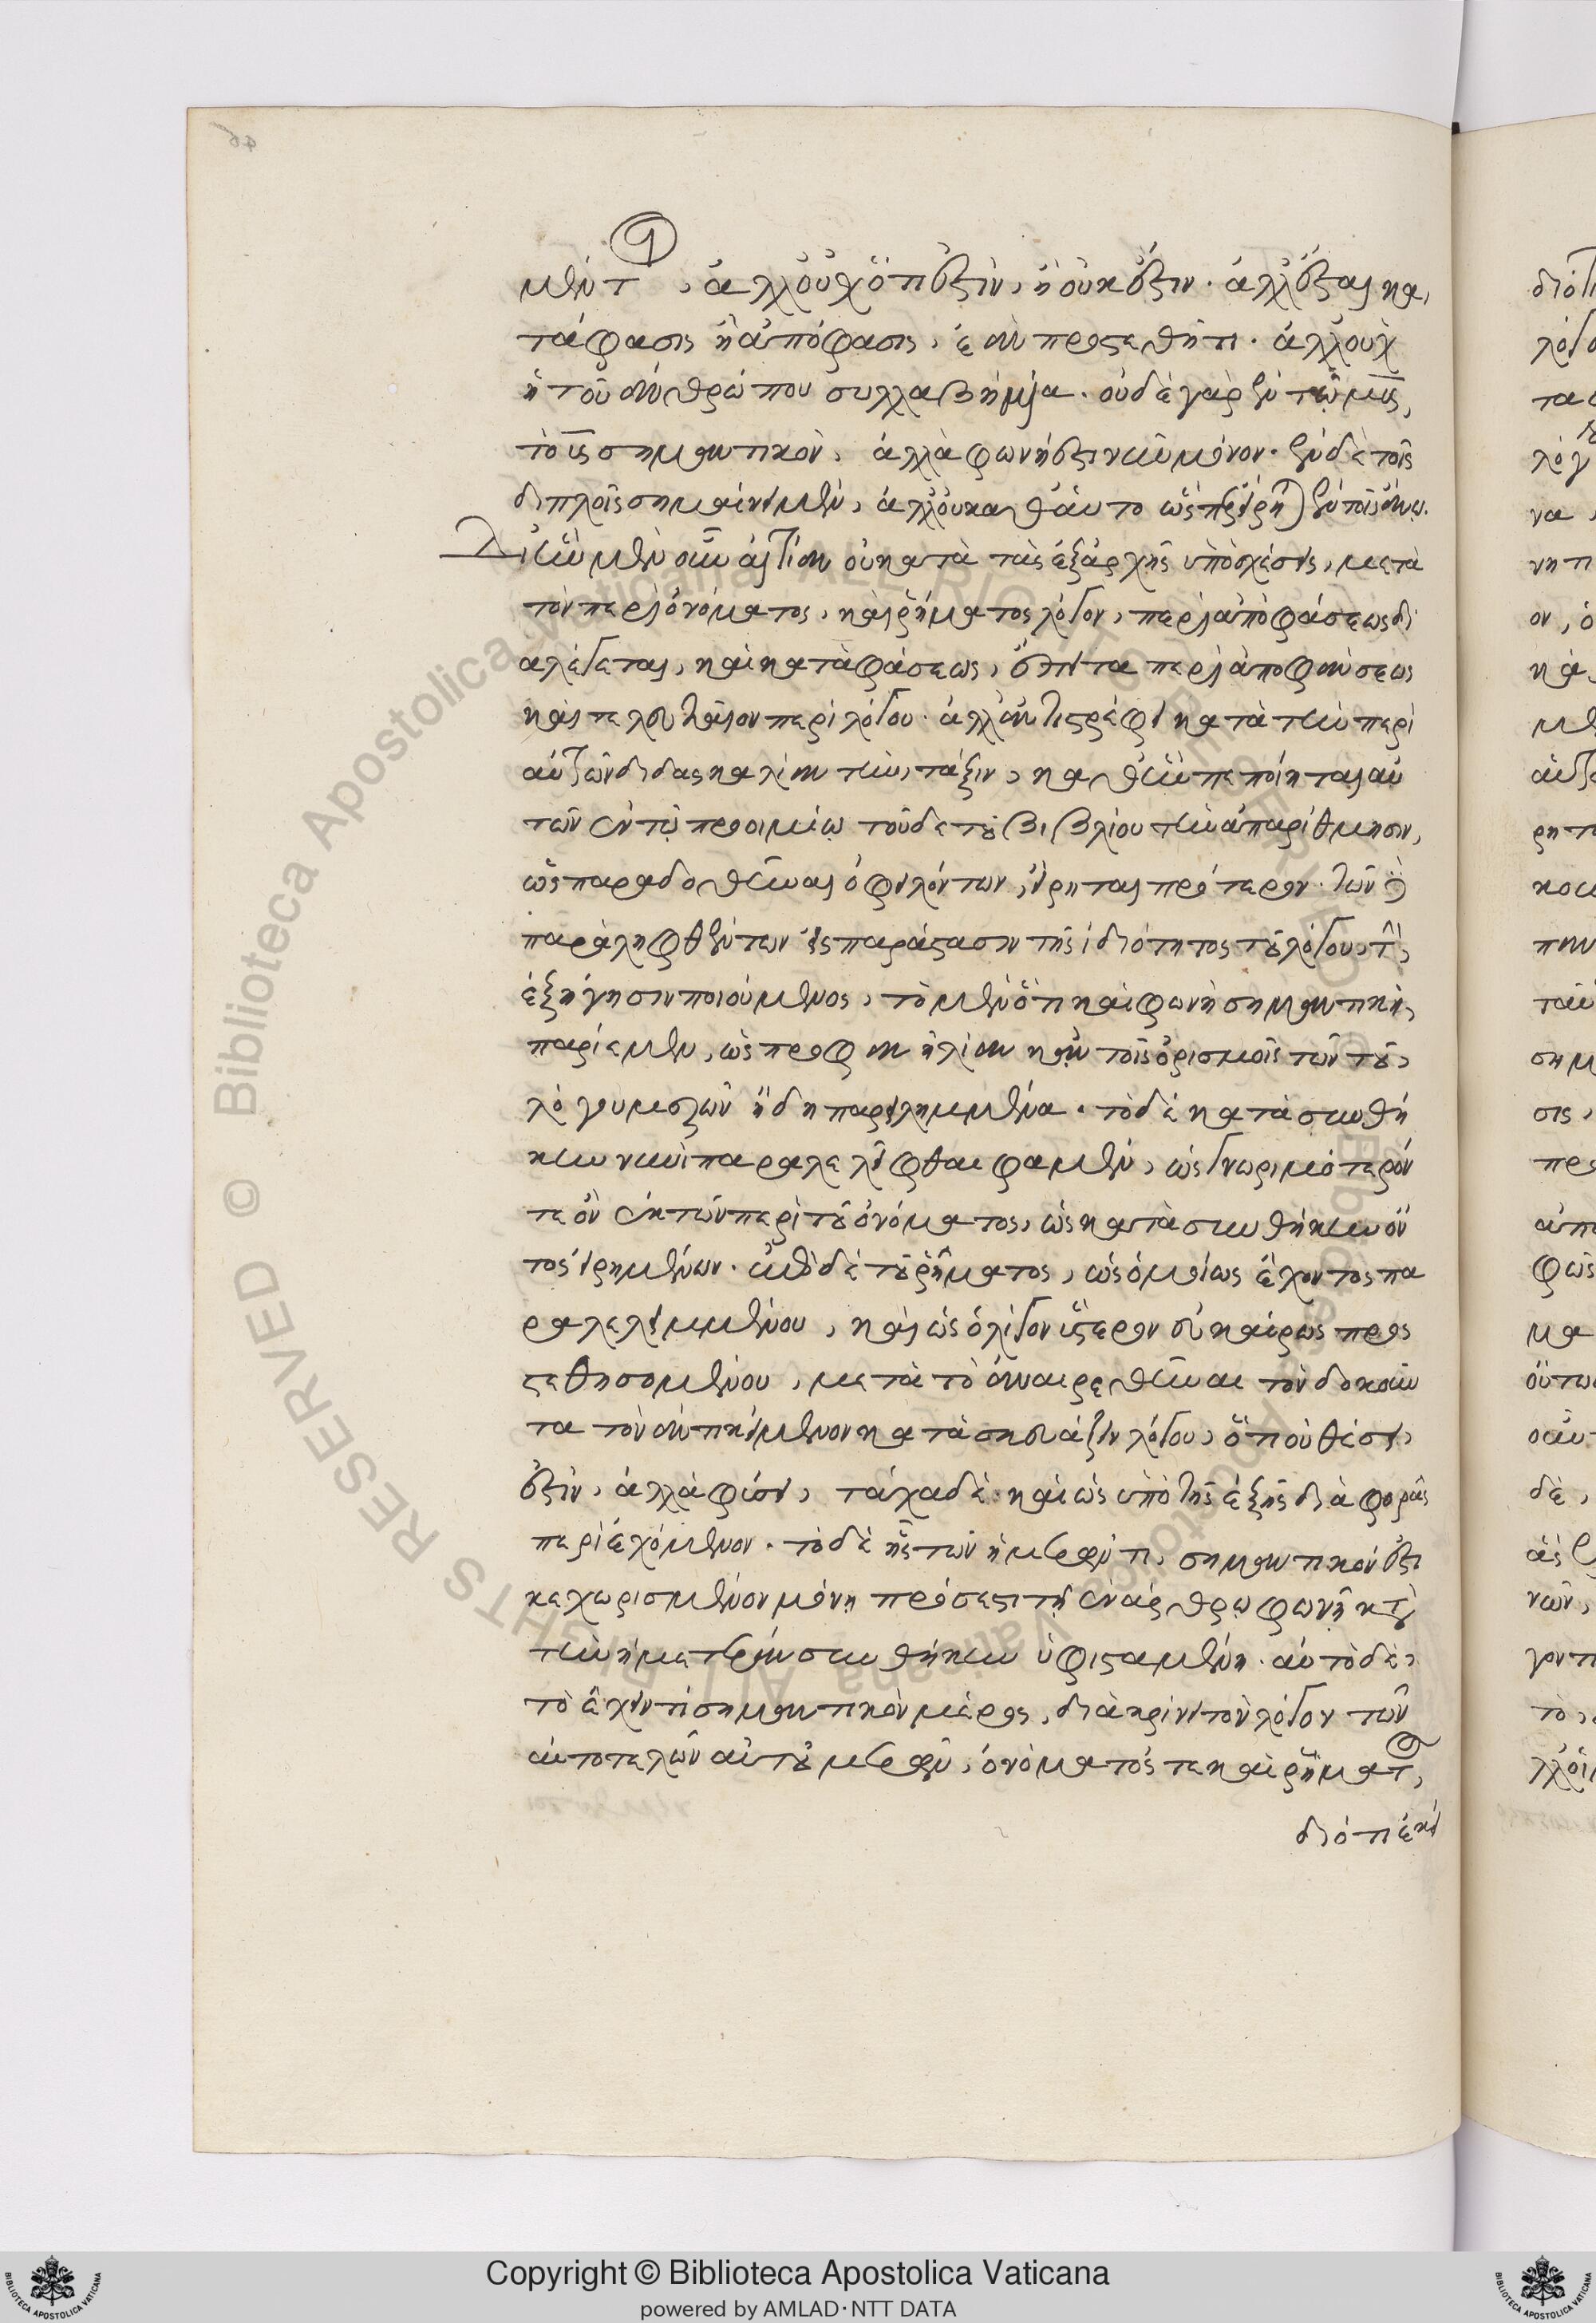 μέν τι, ἀλλ' οὐχ ὅτι ἔστιν, ἢ οὐκ ἔστιν. ἀλλ' ἔσται κα
τάφασις ἢ ἀπόφασις, ἐάν προστεθῇ τι. ἀλλ' οὐχ
ἡ τοῦ ἀνθρώπου συλλαβὴ μία. οὐδὲ γὰρ ἐν τῷ μῦς,
τὸ ῦς σημαντικὸν, ἀλλὰ φωνή ἐστι νῦν μόνον. ἐν δὲ τοῖς
διπλοῖς σημαίνει μὲν, ἀλλ' οὐ καθ' αὑτὸ ὥσπερ εἴρηται
Διὰ ἣν μὲν οὖν αἰτίαν οὐ κατὰ τὰς ἐξ ἀρχῆς ὑποσχέσεις, μετὰ
τὸν περὶ ὀνόματος, καὶ ῥήματος λόγον, περὶ ἀποφάσεως δι
αλέγεται, καὶ καταφάσεως, ἔπειτα περὶ ἀποφάνσεως
καὶ τελευταῖον περὶ λόγου. ἀλλ' ἀντιστρέφει κατὰ τὴν περὶ
αὐτῶν διδασκαλίαν τὴν τάξιν, καθ' ἣν πεποίηται αὐ
τῶν ἐν τῷ προοιμίῳ τοῦδε τοῦ βιβλίου τὴν ἀπαρίθμησιν,
ὡς παραδοθῆναι ὀφειλόντων, εἴρηται πρότερον. τῶν δὲ
παραληφθέντων εἰς παράστασιν τῆς ἰδιότητος τοῦ λόγου, τὴν
ἐξήγησιν ποιούμενος, τὸ μὲν ὅτι καὶ φωνὴ σημαντική
παρίεμεν, ὡς προφανῆ λίαν κἀν τοῖς ὁρισμοῖς τῶν τοῦ
λόγου μερῶν ἤδη παρειλημμένα. τὸ δὲ κατὰ συνθή
κην νῦν παραλελεῖφθαι φαμὲν, ὡς γνωριμότερόν
τε ὂν ἐκ τῶν περὶ τοῦ ὀνόματος, ὡς κατὰ συνθήκην ὄν
τος εἰρημένων. ἐπὶ δὲ τοῦ ῥήματος, ὡς ὁμοίως ἔχοντος πα
ραλελειμμένου, καὶ ὡς ὀλίγον ὕστερον εὐκαίρως προσ
τεθησομένου, μετὰ τὸ ἀναιρεθῆναι τὸν δοκοῦν
τα τὸν ἀντικείμενον κατασκευάζειν λόγον, ὅτι οὐ θέσει
ἐστὶν, ἀλλὰ φύσει, τάχα δὲ καὶ ὡς ὑπὸ τῆς ἑξῆς διαφορᾶς
περιεχόμενον. τὸ δὲ ἧς τῶν μερῶν τι σημαντικόν ἐστι
κεχωρισμένον μόνῃ πρόσεστι τῇ ἐνάρθρῳ φωνῇ κατὰ
τὴν ἡμετέραν συνθήκην ὑφισταμένῃ. αὐτὸ δὲ
τὸ ἔχειν τι σημαντικὸν μέρος, διακρίνει τὸν λόγον τῶν
ἀτοτελῶν αὐτοῦ μερῶν, ὀνόματός τε καὶ ῥήματος,
διότι ἐκεί